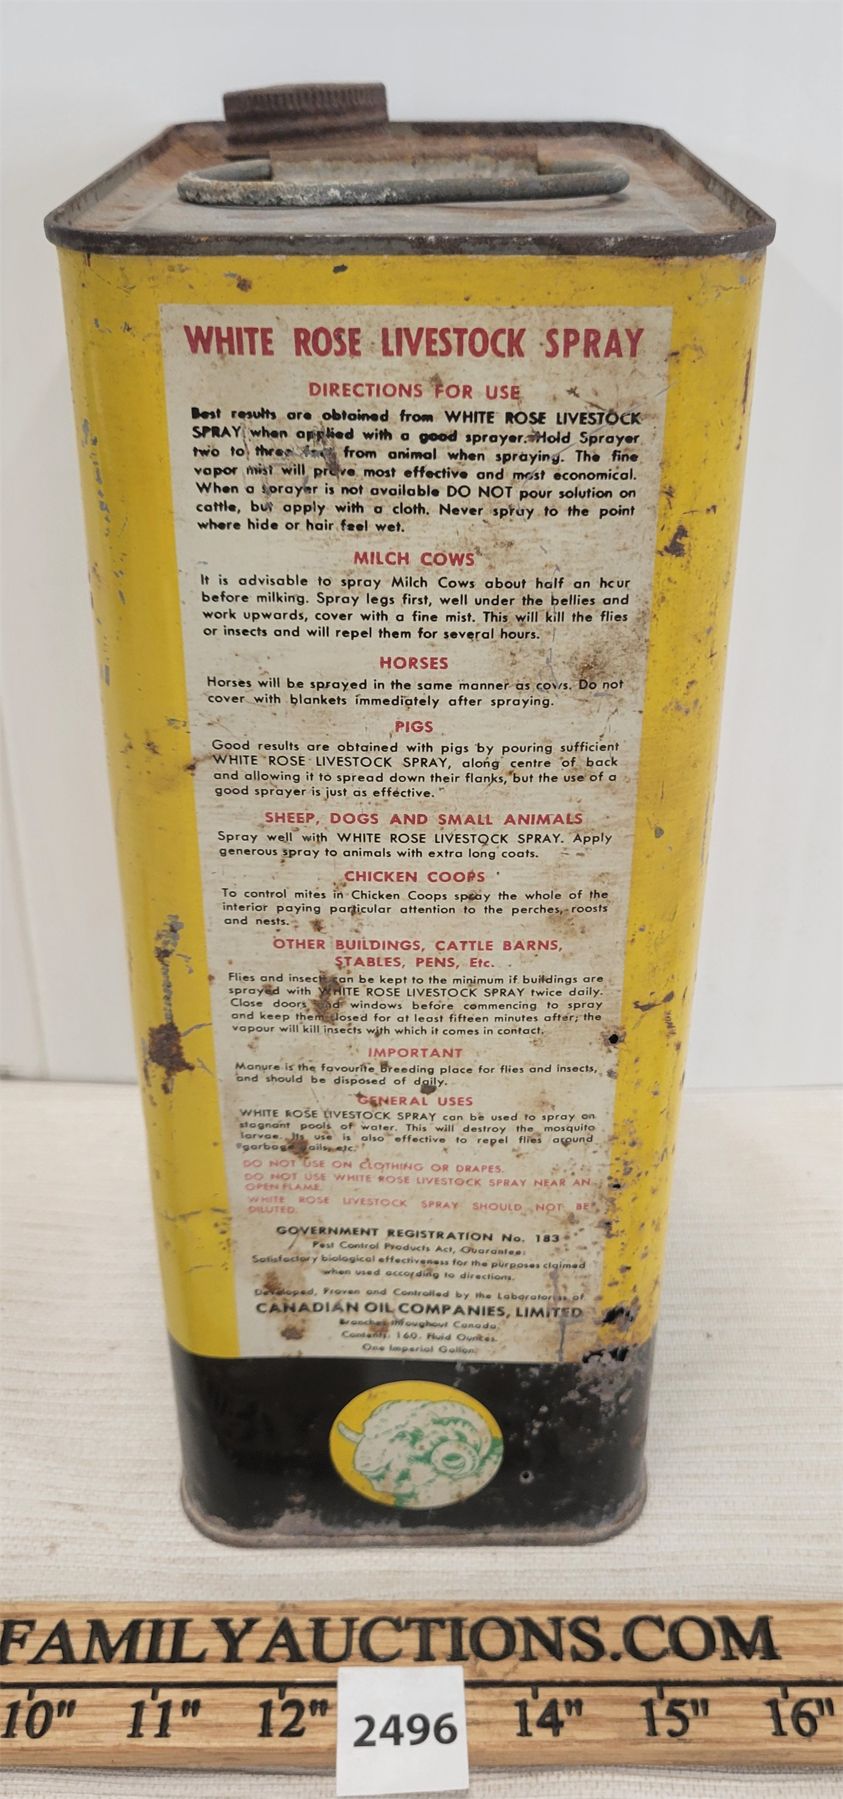 WHITE ROSE LIVESTOCK SPRAY
DIRECTIONS FOR USE
Best results are obtained from WHITE ROSE LIVESTOCK
SPRAY when applied with a good sprayer. Hold Sprayer
two to three feet from animal when spraying. The fine
vapor mist will prove most effective and most economical.
When a sprayer is not available DO NOT pour solution on
cattle, but apply with a cloth. Never spray to the point
where hide or hair feel wet.
MILCH COWS
It is advisable to spray Milch Cows about half an hour
before milking. Spray legs first, well under the bellies and
work upwards, cover with a fine mist. This will kill the flies
or insects and will repel them for several hours.
HORSES
Horses will be sprayed in the same manner as cows. Do not
cover with blankets immediately after spraying.
PIGS
Good results are obtained with pigs by pouring sufficient
WHITE ROSE LIVESTOCK SPRAY, along centre of back
and allowing it to spread down their flanks, but the use of a
good sprayer is just as effective.
SHEEP, DOGS AND SMALL ANIMALS
Spray well with WHITE ROSE LIVESTOCK SPRAY. Apply
generous spray to animals with extra long coats.
CHICKEN COOPS
To control mites in Chicken Coops spray the whole of the
interior paying particular attention to the perches, roosts
and nests.
OTHER BUILDINGS, CATTLE BARNS,
STABLES, PENS, Etc.
Flies and insects can be kept to the minimum if buildings are
sprayed with WHITE ROSE LIVESTOCK SPRAY twice daily.
Close doors and windows before commencing to spray
and keep them closed for at least fifteen minutes after; the
vapour will kill insects with which it comes in contact.
IMPORTANT
Manure is the favourite breeding place for flies and insects,
and should be disposed of daily.
GENERAL USES
WHITE ROSE LIVESTOCK SPRAY can be used to spray on
stagnant pools of water. This will destroy the mosquito
larvae. Its use is also effective to repel flies around
garbage pails, etc.
DO NOT USE ON CLOTHING OR DRAPES.
DO NOT USE WHITE ROSE LIVESTOCK SPRAY NEAR AN
OPEN FLAME.
WHITE ROSE LIVESTOCK SPRAY SHOULD NOT BE
DILUTED.
GOVERNMENT REGISTRATION No. 183
Pest Control Products Act, Guarantee:
Satisfactory biological effectiveness for the purposes claimed
when used according to directions.
Developed, Proven and Controlled by the Laboratories of
CANADIAN OIL COMPANIES, LIMITED
Branches throughout Canada.
Contents: 160 Fluid Ounces.
One Imperial Gallon.
FAMILYAUCTIONS.COM
10" 11" 12" 14" 15" 16"
2496